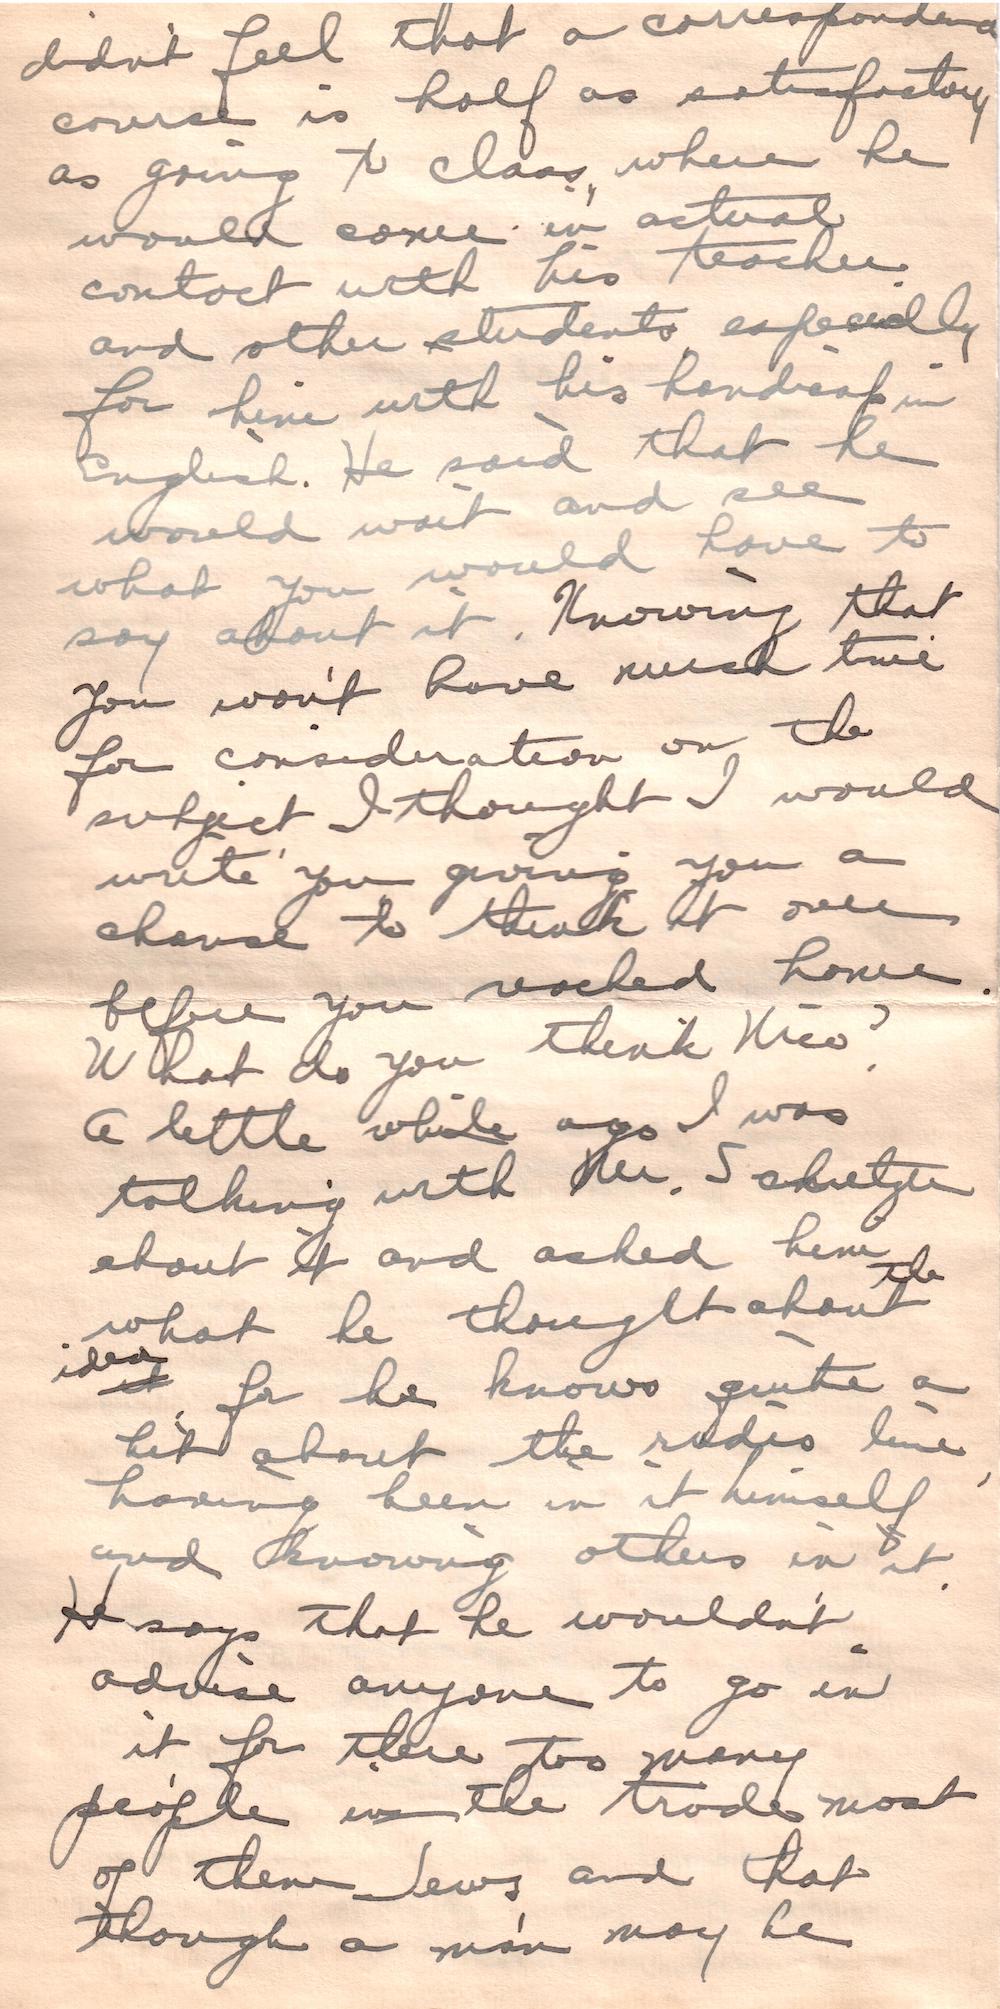 didn't feel that a correspondence
course is half as satisfactory
as going to class, where he
would come in actual
contact with his teacher
and other students, especially
for him with his handicap in
English. He said that he
would wait and see
what you would have to
say about it. Knowing that
you won't have much time
for consideration on the
subject I thought I would
write you giving you a
chance to think it over
before you reached home.
What do you think Nico?
A little while ago I was
talking with Mr.
about it and asked him
what he thought about the
idea, for he knows quite a
bit about the radio line,
having been in it himself
and knowing others in it.
He says that he wouldn't
advise anyone to go in
it for there too many
people in the trade most
of them Jews and that
though a man may be